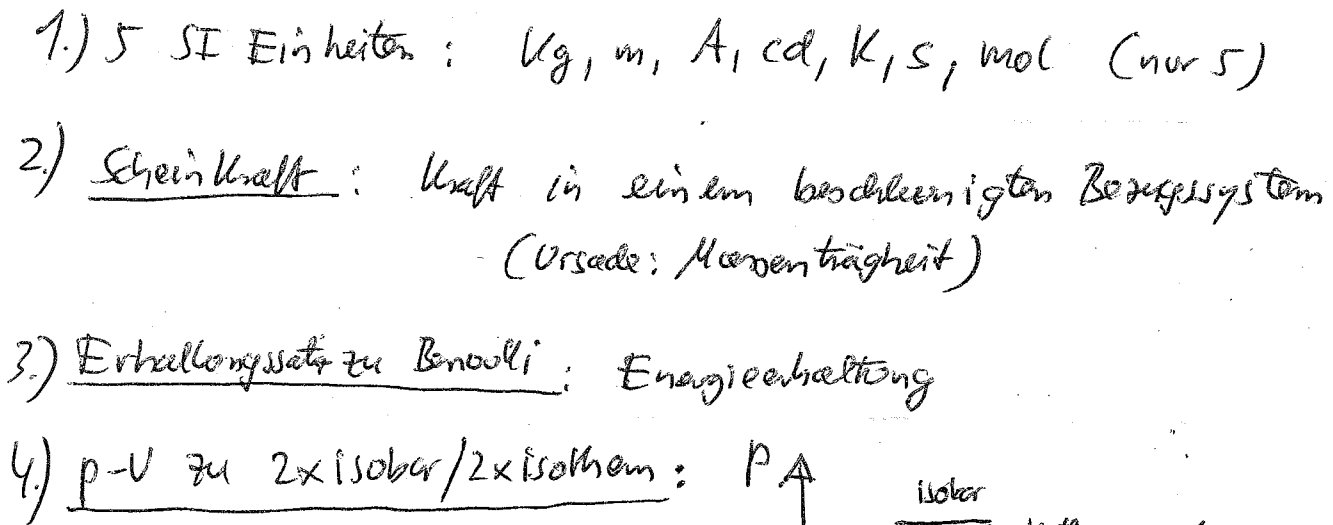 1.) 5 SI Einheiten : kg, m, A, cd, K, s, mol (nur 5)
2.) Scheinkraft : Kraft in einem beschleunigten Bezugssystem
(Ursache: Massenträgheit)
3.) Erhaltungssatz zu Bernoulli : Energieerhaltung
4.) p-V zu 2x isobar/2x isotherm : P
isobar